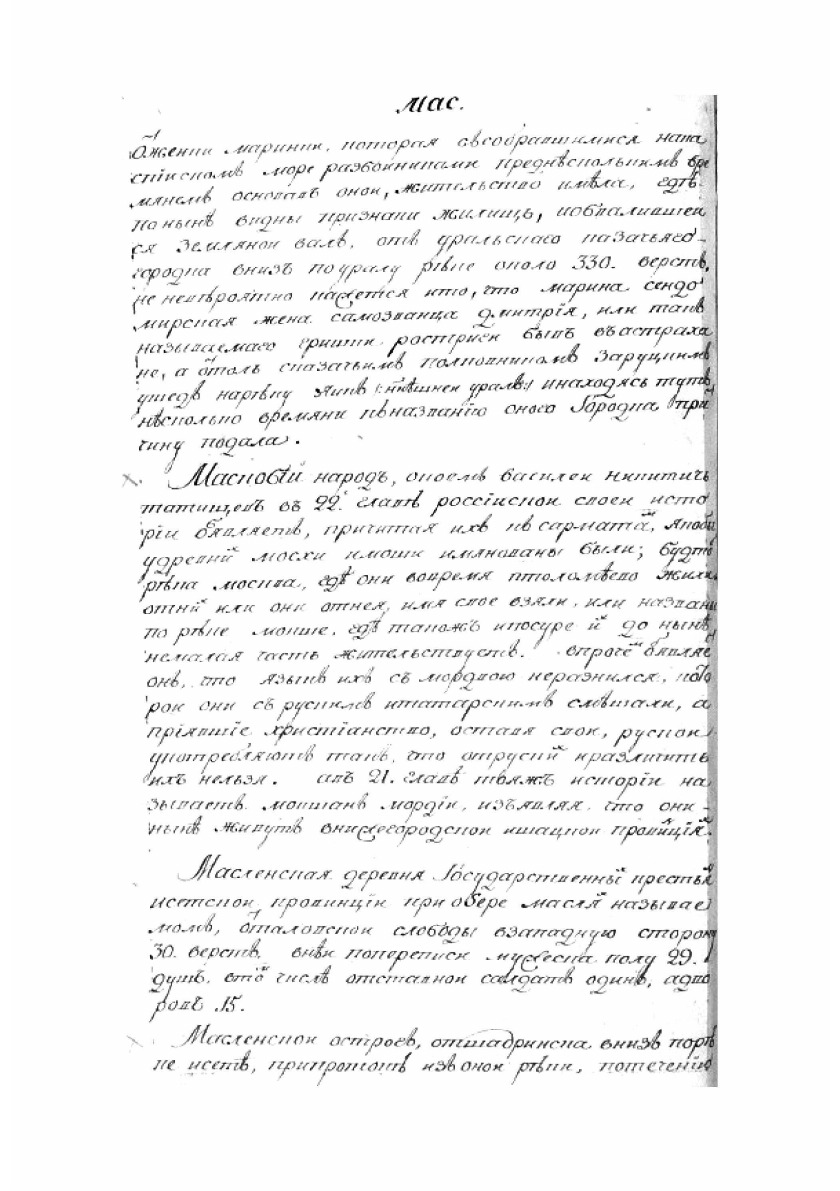 Мас.
ѡ женни маринки, которая ссобравшимися нака
спискомъ море разбойниками преднѣсколькимъ вре
мянемъ основавъ оной, жительство имѣла, гдѣ
понынѣ видны признаки жилищъ, иобвалившей
ся земляной валъ, отъ уральскаго казачьяго
городка внизъ поуралу рѣке около 330. верстъ,
не невѣроятно кажется ито, что марина сендо
мирская жена самозванца дмитрія, или такъ
называемаго гришки ростриги бывъ въастраха
не, а ѿтоль сказачьимъ полковникомъ Заруцкимъ
ушедъ нарѣку яикъ (: нынѣшней уралъ :) инаходясь тутъ
нѣсколько времяни кѣназванію оного Городка при
чину подала.
Масковѣй народъ, окоемъ василей никитичь
татищевъ въ 22. главѣ россійской своей исто
ріи ѡбявляетъ, причитая ихъ къ сарматаᵐ, якобы
удревнйᵡ мосхи имокши имянованы были; будтѡ
рѣка москва, гдѣ они вовремя птоломѣево жили
отнйᵡ или они отнея, имя свое взяли, или названы
по рѣке мокше, гдѣ такожъ ипосуре й до нынѣ
немалая часть жительствуетъ. впрочеᵐ ѡбявляе
онъ, что языкъ ихъ съ мордвою неразнился, кото
рой они съ рускимъ итатарскимъ смѣшали, а
пріявшіе христіанство, оставя свой, руской
употребляютъ такъ, что отрускйᵡ иразличить
ихъ нельзя. авъ 21. главѣ тояжъ исторіи на
зываетъ мокшанъ мордвы, изъявляя, что они
нынѣ живутъ внижегородской ишацкой провинціяᵡ.
Масленская деревня Государственныᵡ крестьяᵑ
исетской провинціи при озере масляᵑ называе
момъ, ѿталовской слободы взападную сторону
30. верстъ. вней попереписи мужеска полу 29.
душъ, втоᵐ числѣ отставной салдатъ одинъ, адво
ровъ .15.
Масленской острогъ, отшадринска внизъ порѣ
ке исетѣ, припротокѣ изъ оной рѣки, потеченію